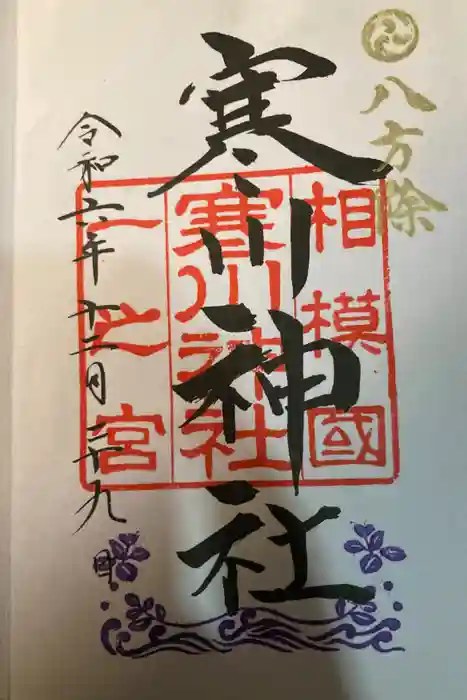 八方除
寒川神社
相模國
寒川神社
一之宮
令和六年十二月二十九日